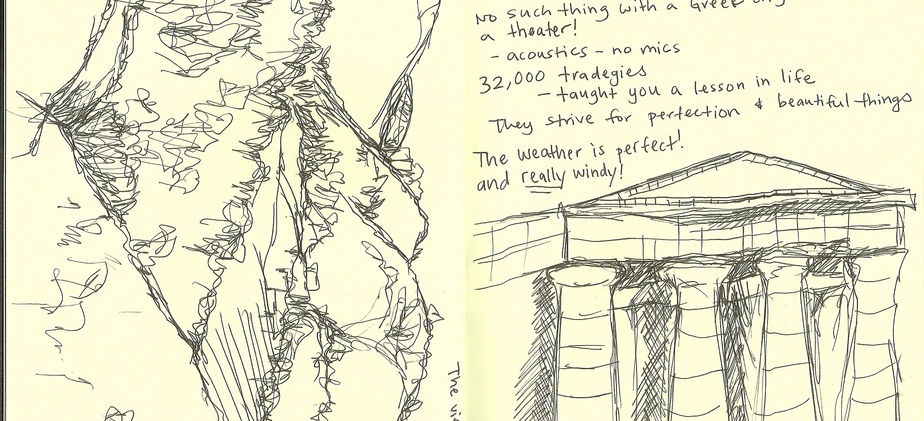 No such thing with a Greek
a theater!
- acoustics - no mics
32,000 tradegies
- taught you a lesson in life
They strive for perfection & beautiful things
The weather is perfect!
and really windy!
The